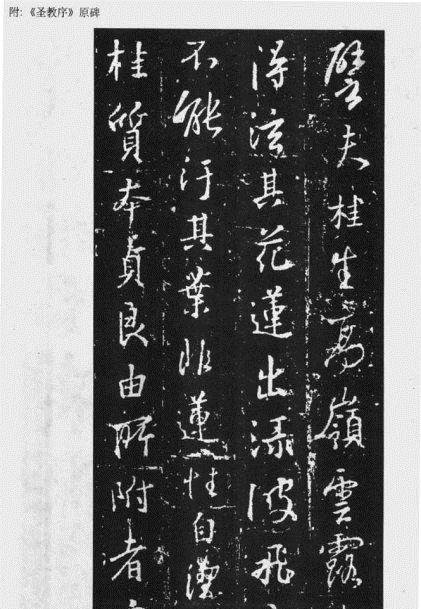 附:《圣教序》原碑
譬夫桂生高嶺雲露
得泫其花蓮出淥波飛
不能汙其葉非蓮性自潔
桂質本貞良由所附者